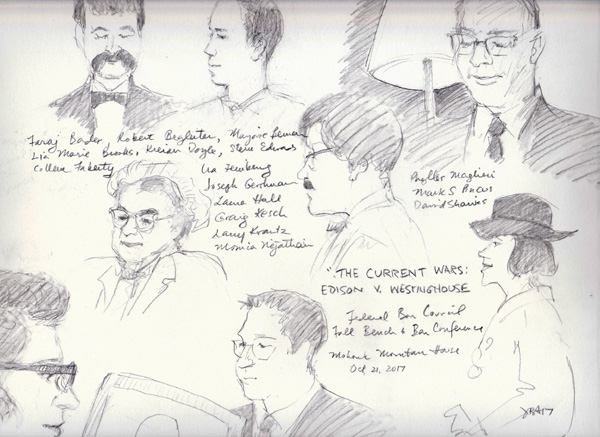 Faraj Bader, Robert Begleiter, Marjorie Berman
Lia Marie Brooks, Kieran Doyle, Steve Edwards
Colleen Faherty
Ira Feinberg
Joseph Gershman
Laura Hall
Craig Kesch
Larry Krantz
Monica Nejathaim
Phyllis Maglieri
Mark S. Pincus
David Shaiman
"THE CURRENT WARS:
EDISON V. WESTINGHOUSE
Federal Bar Council
Fall Bench & Bar Conference
Mohonk Mountain House
Oct 21, 2017